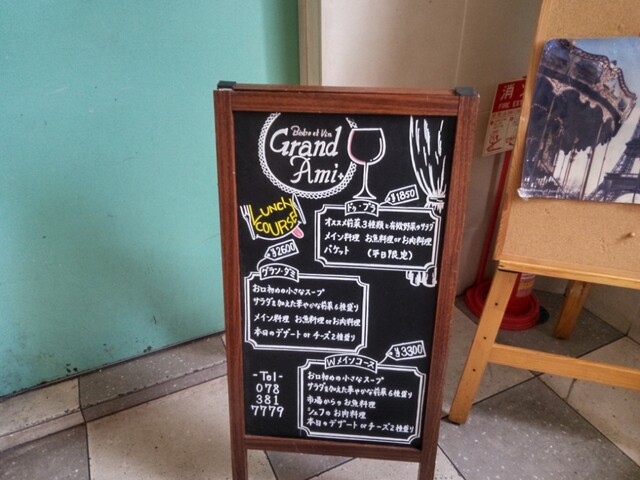 Bistro et Vin
Grand
Ami
LUNCH
COURSE
¥1850
ドゥ・プラ
オススメ前菜3種類と有機野菜のサラダ
メイン料理 お魚料理orお肉料理
バケット (平日限定)
¥2600
グラン・ダミ
お口初めの小さなスープ
サラダを加えた華やかな前菜6種盛り
メイン料理 お魚料理orお肉料理
本日のデザート or チーズ2種盛り
¥3300
Wメインコース
お口初めの小さなスープ
サラダを加えた華やかな前菜6種盛り
市場からのお魚料理
シェフのお肉料理
本日のデザート or チーズ2種盛り
-Tel-
078
381
7779
消
FIRE